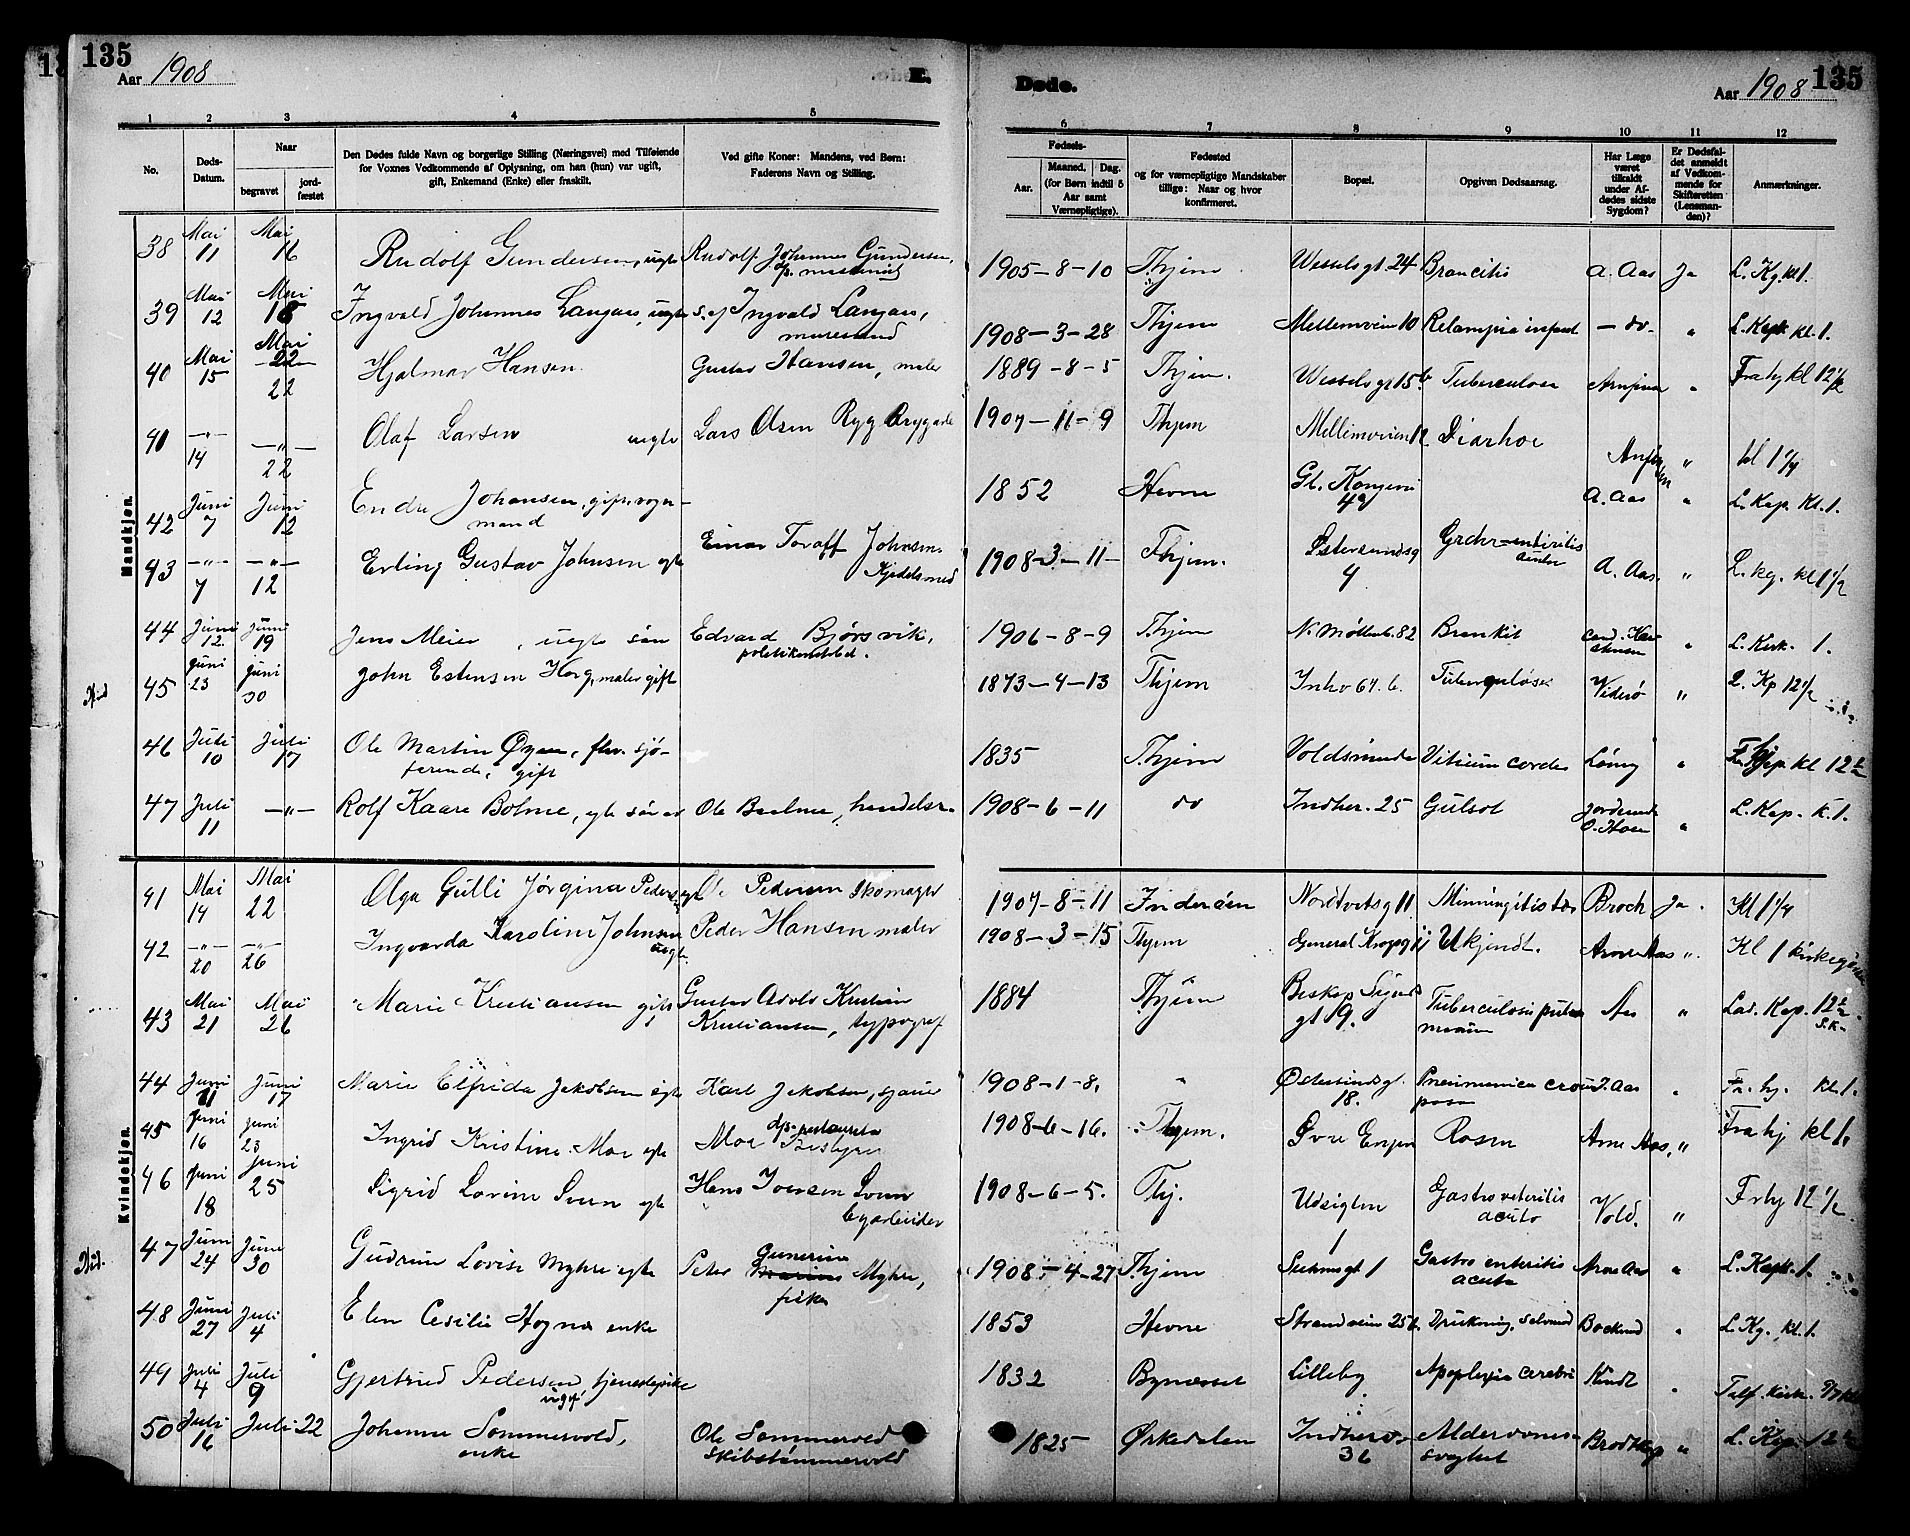 135
Aar 1908
E.
Døde.
Aar 1908
135
1 2 3 4 5
6 7 8 9 10 11 12
No.
Døds-
Datum.
Naar
begravet
jord-
fæstet
Den Dødes fulde Navn og borgerlige Stilling (Næringsvei) med Tilføiende
for Voxnes Vedkommende af Oplysning, om han (hun) var ugift,
gift, Enkemand (Enke) eller fraskilt.
Ved gifte Koner: Mandens, ved Børn:
Faderens Navn og Stilling.
Fødsels-
Aar.
Maaned.
Dag.
(for Børn indtil 5
Aar samt
Værnepligtige).
Fødested
og for værnepligtige Mandskaber
tillige: Naar og hvor
konfirmeret.
Bopæl.
Opgiven Dødsaarsag.
Har Læge
været
tilkaldt
under Af-
dødes sidste
Sygdom?
Er Dødsfal-
det anmeldt
af Vedkom-
mende for
Skifteretten
(Lensman-
den)?
Anmærkninger.
Mandkjøn.
38 Mai 11 Mai 16 Rudolf Gundersen, uegte Rudolf Johannes Gundersen, 1905-8-10 Thjem Wesselsgt. 24 Broncitis A. Aas Ja L. Kg. kl 1.
39 Mai 12 Mai 18 Ingvald Johannes Langaas, uegte s. af Ingvald Langaas, 1908-3-28 Thjem Mellemveien 10 -do- " L. Kapk kl. 1.
40 Mai 15 Mai 22 22 Hjalmar Hansen Gustav Hansen, maler 1889-8-5 Thjem. Wesselsgt 15b Tuberculose " Fra hj kl 12 1/2
41 -"- 14 -"- 22 Olaf Larsen uegte Lars Olsen Ryg 1907-11-9 Thjem Mellemveien 12 Diarhoe " kl 1 1/4
42 Juni 7 Juni 12 Endre Johansen, gift, vogn-
mand 1852 Hevne Gl. Kongevei
49 A. Aas " L. Kap. Kl. 1.
43 -"- 7 -"- 12 Erling Gustav Johnsen egte Einar Toralf Johnsen
Kjedelsmed 1908-3-11- Thjem. Østersundsg
4 A. Aas. " L. kg. kl 1 1/2
44 Juni 12. Juni 19 Jens Meier, uegte søn Edvard Bjørsvik,
politikonstabel. 1906-8-9 Thjem N. Møllenb. 82 Bronkit cand. " L. Kirk. 1.
Nid
45 Juni 23 Juni 30 John Estensen Horg, maler gift 1873-4-13 Thjem Inhv 67. b. Tuberculose Viderø " L. Kp 12 1/2
46 Juli 10 Juli 17 Ole Martin Øyen, fhv. sjø-
farende, gift 1835 Thjem Voldsminde Vitium cordis " kl 12 1/2
47 Juli 11 -"- Rolf Kaare Bolme, egte søn av Ole Bolme, handelsr. 1908-6-11 do Indher. 25 Gulsot Jordemoder
O. Hoen " L. Kap. K. 1.
Kvindekjøn.
41 Mai 14 Mai 22 Olga Gulli Jørgina Pedersen egt Ole Pedersen Skomager 1907-8-11 Inderøen Nordvetsg 11 Broch Ja. Kl 1 1/4
42 -"- 20 -"- 26 Ingvarda Karoline Johnsen
uegte. Peder Hansen maler 1908-3-15 Thjem Ukjendt. Arne Aas ". Kl 1
43 Mai 21 Mai 26 Marie Kristiansen gift Gustav Adolv Kristian
Kristiansen, typograf 1884 Thjem Biskop Sigurds
gt 9. Tuberculosis pulmonum Aas " Lad. Kap. 12 1/2
44 Juni 11 Juni 17 Marie Elfrida Jakobsen egte Karl Jakobsen, sjauer 1908-1-8. " Østersundsgt.
18. Pneumonica crou-
posa J. Aas " Fr. hj. kl. 1.
45 Juni 16 Juni 23 Ingrid Kristine Moe egte Moe 1908-6-16. Thjem. Øvre Engen Arne Aas. " Fra hj kl 1.
46 Juni 18 Juni 25 Sigrid Lovine Sven egte Hans Iversen Sven
byarbeider 1908-6-5. Thj. Udsigten
1 Gastroenteritis
acuta Vold. " Fr hj 12 1/2.
Nid.
47 Juni 24 Juni 30 Gudrun Lovise Myhre egte Peter Gunerius Myhre,
fisker 1908-4-27 Thjem Gastro enteritis
acuta Arne Aas " L. Kapk. 1.
48 Juni 27 Juli 4 Elen Cesilie Hognes enke 1853 Hevne Strandveien 25b. Drukning, selvmord " L. Kg. kl. 1.
49 Juli 4 Juli 9 Gjertrud Pedersen tjenestepike
ugift 1832 Bynesset Lilleby Apoplexia cerebri Kindt "
50 Juli 16 Juli 22 Johanna Sommervold,
enke Ole Sommervold
Skibstømmermand 1825 Ørkedalen Indherv.
36 Alderdoms-
svaghet " L. Kap. 12 1/2